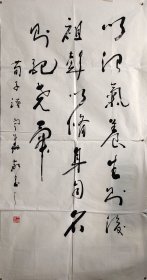 以治氣養生則後
祖彭以脩身自名
則配堯舜
荀子語